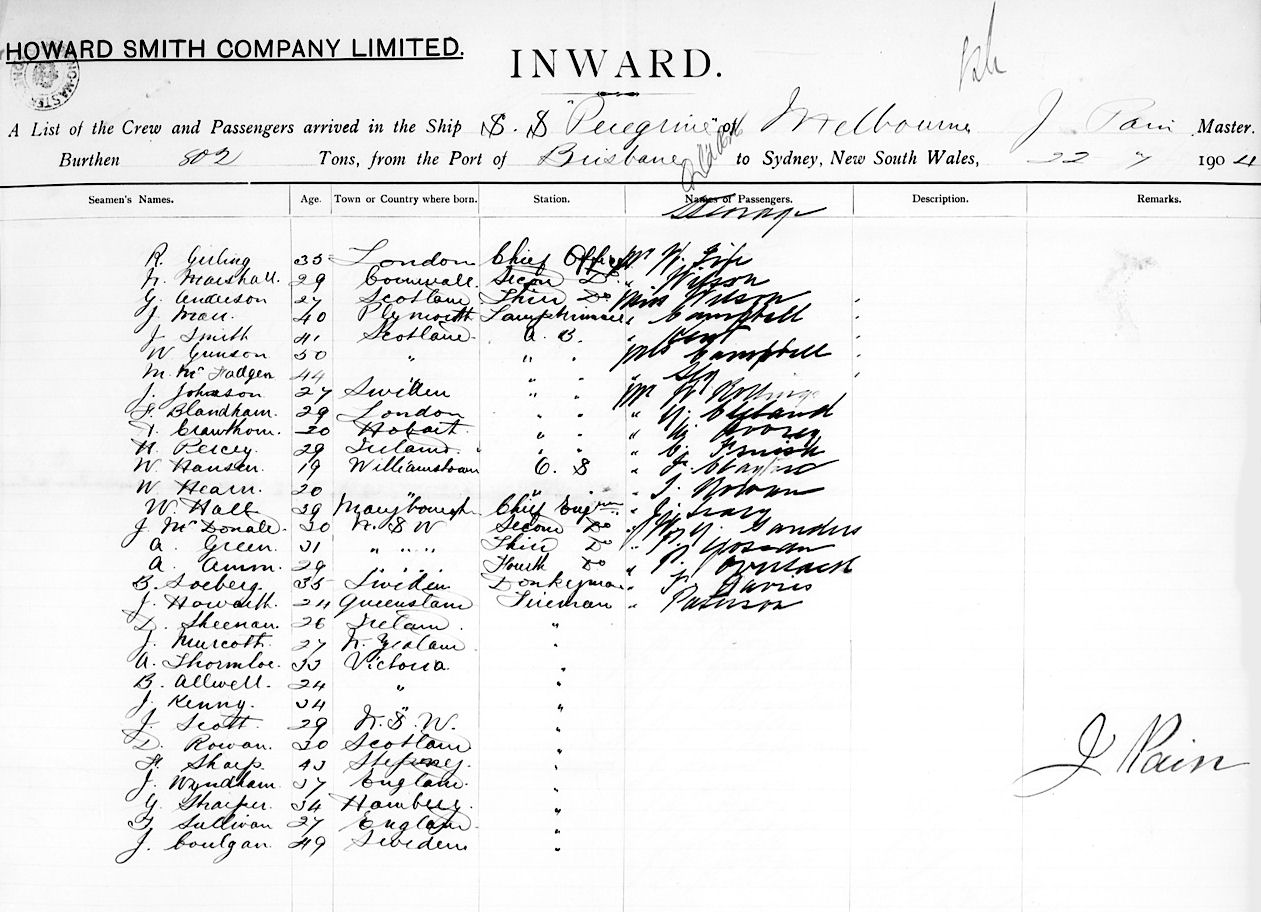 HOWARD SMITH COMPANY LIMITED.
INWARD.
A List of the Crew and Passengers arrived in the Ship S.S "Peregrine" of Melbourne J Pain Master.
Burthen 802 Tons, from the Port of Brisbane to Sydney, New South Wales, 22 7 1904
Seamen's Names. Age. Town or Country where born. Station. Names of Passengers. Description. Remarks.
Steerage
R. Girling 35 London Chief Officer Mr W.
N. Marshall. 29 Cornwall. Second Do " Wilson
G. Anderson 27 Scotland Third Do Miss Wilson
J. Marr. 40 Plymouth Lamptrimmer " Campbell
J. Smith 41 Scotland. A. B. " Kent
W. Gunson 50 " " " Mrs Campbell
M. McFadgen 44 " "
J. Johnson 27 Sweden " " Mr
F. Blandham. 29 London " "
T. Crawthorn. 30 Hobart. " " "
H. Percey. 29 Ireland. " " "
W. Hansen. 19 Williamstown O. S "
W. Hearn. 20 " " "
W. Hall 39 Marybough Chief Engineer "
J. McDonald. 30 N. S W Second Do " Sanders
A. Green. 31 " " " Third Do "
A. Amm. 29 " " " Fourth Do "
B. Soeberg. 35 Sweden Donkeyman " Davis
J. Howarth. 24 Queenstown Fireman " Paterson
D. Sheenan. 26 Ireland. "
J. Murcott. 27 N. Zealand. "
A. Thormloe. 33 Victoria. "
B. Allwell. 24 " "
J. Kenny. 34 " "
J. Scott. 29 N. S. W. "
D. Rowan. 30 Scotland "
H. Sharp. 43 Stepney. "
J. Wyndham. 37 England. "
G. Sharper. 34 Hamberg. "
T Sullivan 27 England. "
J. Coulgan. 49 Sweden. "
J Pain